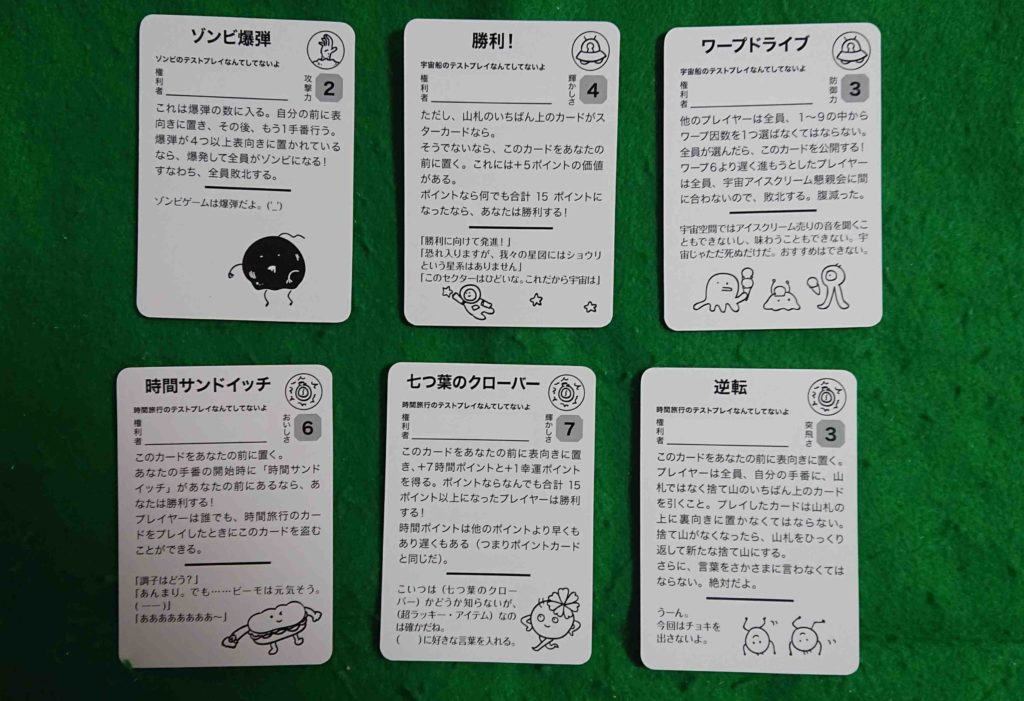 ゾンビ爆弾
ゾンビのテストプレイなんてしてないよ
権利者
攻撃力
2
これは爆弾の数に入る。自分の前に表
向きに置き、その後、もう1手番行う。
爆弾が4つ以上表向きに置かれている
なら、爆発して全員がゾンビになる!
すなわち、全員敗北する。
ゾンビゲームは爆弾だよ。('_')
勝利!
宇宙船のテストプレイなんてしてないよ
権利者
輝かしさ
4
ただし、山札のいちばん上のカードがス
ターカードなら。
そうでないなら、このカードをあなたの
前に置く。これには+5ポイントの価値
がある。
ポイントなら何でも合計 15 ポイントに
なったなら、あなたは勝利する!
「勝利に向けて発進!」
「恐れ入りますが、我々の星図にはショウリ
という星系はありません」
「このセクターはひどいな。これだから宇宙は」
ワープドライブ
宇宙船のテストプレイなんてしてないよ
権利者
防御力
3
他のプレイヤーは全員、1〜9の中から
ワープ因数を1つ選ばなくてはならない。
全員が選んだら、このカードを公開する!
ワープ6より遅く進もうとしたプレイヤー
は全員、宇宙アイスクリーム懇親会に間
に合わないので、敗北する。腹減った。
宇宙空間ではアイスクリーム売りの音を聞くこ
ともできないし、味わうこともできない。宇
宙じゃただ死ぬだけだ。おすすめはできない。
時間サンドイッチ
時間旅行のテストプレイなんてしてないよ
権利者
おいしさ
6
このカードをあなたの前に置く。
あなたの手番の開始時に「時間サンド
イッチ」があなたの前にあるなら、あ
なたは勝利する!
プレイヤーは誰でも、時間旅行のカー
ドをプレイしたときにこのカードを盗む
ことができる。
「調子はどう?」
「あんまり。でも……ビーモは元気そう。
(ーー)」
「ああああああああ〜」
七つ葉のクローバー
時間旅行のテストプレイなんてしてないよ
権利者
輝かしさ
7
このカードをあなたの前に表向きに置
き、+7時間ポイントと+1幸運ポイント
を得る。ポイントならなんでも合計 15
ポイント以上になったプレイヤーは勝利
する!
時間ポイントは他のポイントより早くも
あり遅くもある(つまりポイントカード
と同じだ)。
こいつは(七つ葉のクロー
バー)かどうか知らないが、
(超ラッキー・アイテム)なの
は確かだね。
(　　)に好きな言葉を入れる。
逆転
時間旅行のテストプレイなんてしてないよ
権利者
突飛さ
3
このカードをあなたの前に表向きに置く。
プレイヤーは全員、自分の手番に、山
札ではなく捨て山のいちばん上のカード
を引くこと。プレイしたカードは山札の
上に裏向きに置かなくてはならない。
捨て山がなくなったら、山札をひっくり
返して新たな捨て山にする。
さらに、言葉をさかさまに言わなくては
ならない。絶対だよ。
うーん。
今回はチョキを
出さないよ。